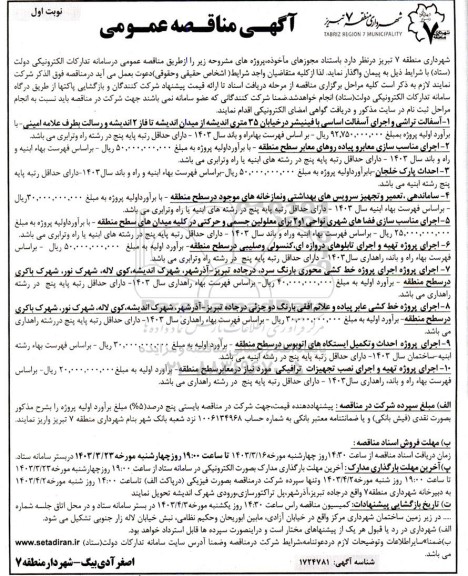 نوبت اول
آگهی مناقصه عمومی
شهرداری منطقه ۷ تبریز
TABRIZ REGION 7 MUNICIPALITY
شهرداری منطقه ۷ تبریز درنظر دارد باستناد مجوزهای مأخوذه،پروژه های مشروحه زیر را ازطریق مناقصه عمومی درسامانه تدارکات الکترونیکی دولت
(ستاد) با شرایط ذیل به پیمان واگذار نماید. لذا از کلیه متقاضیان واجد شرایط( اشخاص حقیقی وحقوقی)دعوت بعمل می آید درمناقصه فوق الذکر شرکت
نمایند لازم به ذکر است کلیه مراحل برگزاری مناقصه از مرحله دریافت اسناد تا ارائه قیمت پیشنهاد شرکت کنندگان و بازگشایی پاکتها از طریق درگاه
سامانه تدارکات الکترونیکی دولت(ستاد) انجام خواهدشد.ضمنا شرکت کنندگانی که عضو سامانه نمی باشند جهت شرکت در مناقصه باید نسبت به انجام
مراحل ثبت نام در سایت مذکور و دریافت گواهی امضای الکترونیکی اقدام نمایند.
۱-آسفالت تراشی و اجرای آسفالت اساسی با فینیشر درخیابان ۳۵ متری اندیشه از میدان اندیشه تا فاز ۲ اندیشه و رسالت بطرف علامه امینی-با
برآورد اولیه پروژه بمبلغ ۹۲,۷۵۰,۰۰۰,۰۰۰ ریال - بر اساس فهرست بهاءراه و باند سال ۱۴۰۳ - دارای حداقل رتبه پایه پنج در رشته راه وترابری می باشد.
۲-اجرای مناسب سازی معابرو پیاده روهای معابر سطح منطقه - با برآورد اولیه به مبلغ ۵۰,۰۰۰,۰۰۰,۰۰۰ ریال - براساس فهرست بهاء ابنیه و
راه و باند سال ۱۴۰۳ - دارای حداقل رتبه پایه پنج در رشته های ابنیه یا راه وترابری می باشد.
۳-احداث پارک خلجان -بابرآورد اولیه پروژه به مبلغ ۵۰,۰۰۰,۰۰۰,۰۰۰ ریال -براساس فهرست بهاء ابنیه سال ۱۴۰۳-دارای حداقل رتبه پایه پنج
رشته ابنیه می باشد.
۴-ساماندهی ،تعمیر و تجهیز سرویس های بهداشتی ونمازخانه های موجود درسطح منطقه - بابرآورد اولیه پروژه به مبلغ ۳۰,۰۰۰,۰۰۰,۰۰۰ریال
-براساس فهرست بهاء ابنیه سال ۱۴۰۳ - دارای حداقل رتبه پایه پنج در رشته های ابنیه می باشد.
۵-اجرای مناسب سازی فضا های شهری نواحی ۱و۲ برای معلولین جسمی و حرکتی در کلیه میدان های سطح منطقه - بابرآورداولیه پروژه به مبلغ
۲۵,۰۰۰,۰۰۰,۰۰۰ ریال -براساس فهرست بهاء ابنیه وراه و باند سال ۱۴۰۳- دارای حداقل رتبه پایه پنج در رشته های ابنیه یا راه وترابری می باشد.
۶-اجرای پروژه تهیه و اجرای تابلوهای دروازه ای،کنسولی وصلیبی درسطح منطقه - بابرآورد اولیه به مبلغ ۵۰,۰۰۰,۰۰۰,۰۰۰ ریال -براساس
فهرست بهاء ابنیه و راه، باندو راهداری سال۱۴۰۳ - دارای حداقل رتبه پایه پنج در رشته های ابنیه یا راه وترابری می باشد.
۷-اجرای پروژه اجرای پروژه خط کشی محوری بارنگ سرد، درجاده تبریز-آذرشهر، شهرک اندیشه،کوی لاله، شهرک نور، شهرک باکری
درسطح منطقه - بابرآورد اولیه به مبلغ ۴۰,۰۰۰,۰۰۰,۰۰۰ ریال -براساس فهرست بهاء راهداری سال۱۴۰۳- دارای حداقل رتبه پایه پنج در رشته
راهداری می باشد.
۸-اجرای پروژه خط کشی عابر پیاده و علائم افقی بارنگ دو جزئی درجاده تبریز-آذرشهر، شهرک اندیشه،کوی لاله، شهرک نور، شهرک باکری
درسطح منطقه - بابرآورد اولیه به مبلغ ۳۰,۰۰۰,۰۰۰,۰۰۰ ریال -براساس فهرست بهاء راهداری سال۱۴۰۳- دارای حداقل رتبه پایه پنج در رشته راهداری
می باشد.
۹-اجرای پروژه احداث وتکمیل ایستگاه های اتوبوس درسطح منطقه - بابرآورد اولیه به مبلغ ۳۰,۰۰۰,۰۰۰,۰۰۰ ریال -براساس فهرست بهاء
ابنیه-ساختمان سال ۱۴۰۳- دارای حداقل رتبه پایه پنج در رشته ابنیه می باشد.
۱۰-اجرای پروژه تهیه و اجرای نصب تجهیزات ترافیکی مورد نیاز درمعابرسطح منطقه - بابرآورد اولیه به مبلغ ۲۰,۰۰۰,۰۰۰,۰۰۰ ریال -براساس
فهرست بهاء راه وباند، راهداری سال ۱۴۰۳- دارای حداقل رتبه پایه پنج در رشته راهداری می باشد.
الف) مبلغ سپرده شرکت در مناقصه : پیشنهاددهنده قیمت،جهت شرکت در مناقصه بایستی پنج درصد(۵%) مبلغ برآورد اولیه پروژه را بشرح مذکور
بصورت نقدی (فیش بانکی) و یا ضمانتنامه معتبر بانکی به شماره حساب ۱۰۰۶۱۳۴۹۶۸ نزد شعبه بانک شهر بنام شهرداری منطقه ۷ تبریز واریز نماید.
ب) مهلت فروش اسناد مناقصه:
زمان دریافت اسناد مناقصه از ساعت ۱۴:۳۰ روز چهارشنبه مورخه ۱۴۰۳/۳/۱۶ تا ساعت ۱۹:۰۰ روزچهارشنبه مورخه ۱۴۰۳/۳/۲۳ درپستر سامانه ستاد.
پ)آخرین مهلت بارگذاری مدارک: آخرین مهلت بارگذاری مدارک بصورت الکترونیکی در سامانه ستاد از ساعت ۱۹:۰۰ روز چهارشنبه مورخه ۱۴۰۳/۳/۲۳
تا ساعت ۱۴:۳۰روز شنبه مورخه ۱۴۰۳/۴/۲ وتنها سپرده شرکت درمناقصه بصورت فیزیکی (درپاکت الف) تاساعت ۱۴:۰۰ روز شنبه مورخه ۱۴۰۳/۴/۲
به دبیرخانه شهرداری منطقه۷ واقع درجاده تبریز،آذرشهر،پل تراکتورسازی،ورودی شهرک اندیشه تحویل نمایند
ت) تاریخ بازگشایی پیشنهادات: کمیسیون مناقصه راس ساعت ۱۴:۳۰ روز یکشنبه مورخه۱۴۰۳/۴/۳ در پستر سامانه ستاد و در محل اتاق جلسه شماره
.... در زیر زمین ساختمان شهرداری مرکز واقع در خیابان آزادی، مابین ابوریحان وحکیم نظامی، نبش خیابان لاله زار جنوبی تشکیل می شود.
الف) شهرداری در رد یا قبول هر یک از پیشنهادهای واصله مختار است ودراینصورت سپرده ها قابل استرداد خواهد بود.
ب)ضمناًسایراطلاعات وتوضیحات لازم دردعوتنامه،شرایط شرکت درمناقصه وضمنا آدرس سایت سامانه تدارکات دولت(ستاد) www.setadiran.ir
می باشد.
شناسه آگهی: ۱۷۲۴۷۸۱
اصغر آدی بیگ - شهردارمنطقه ۷